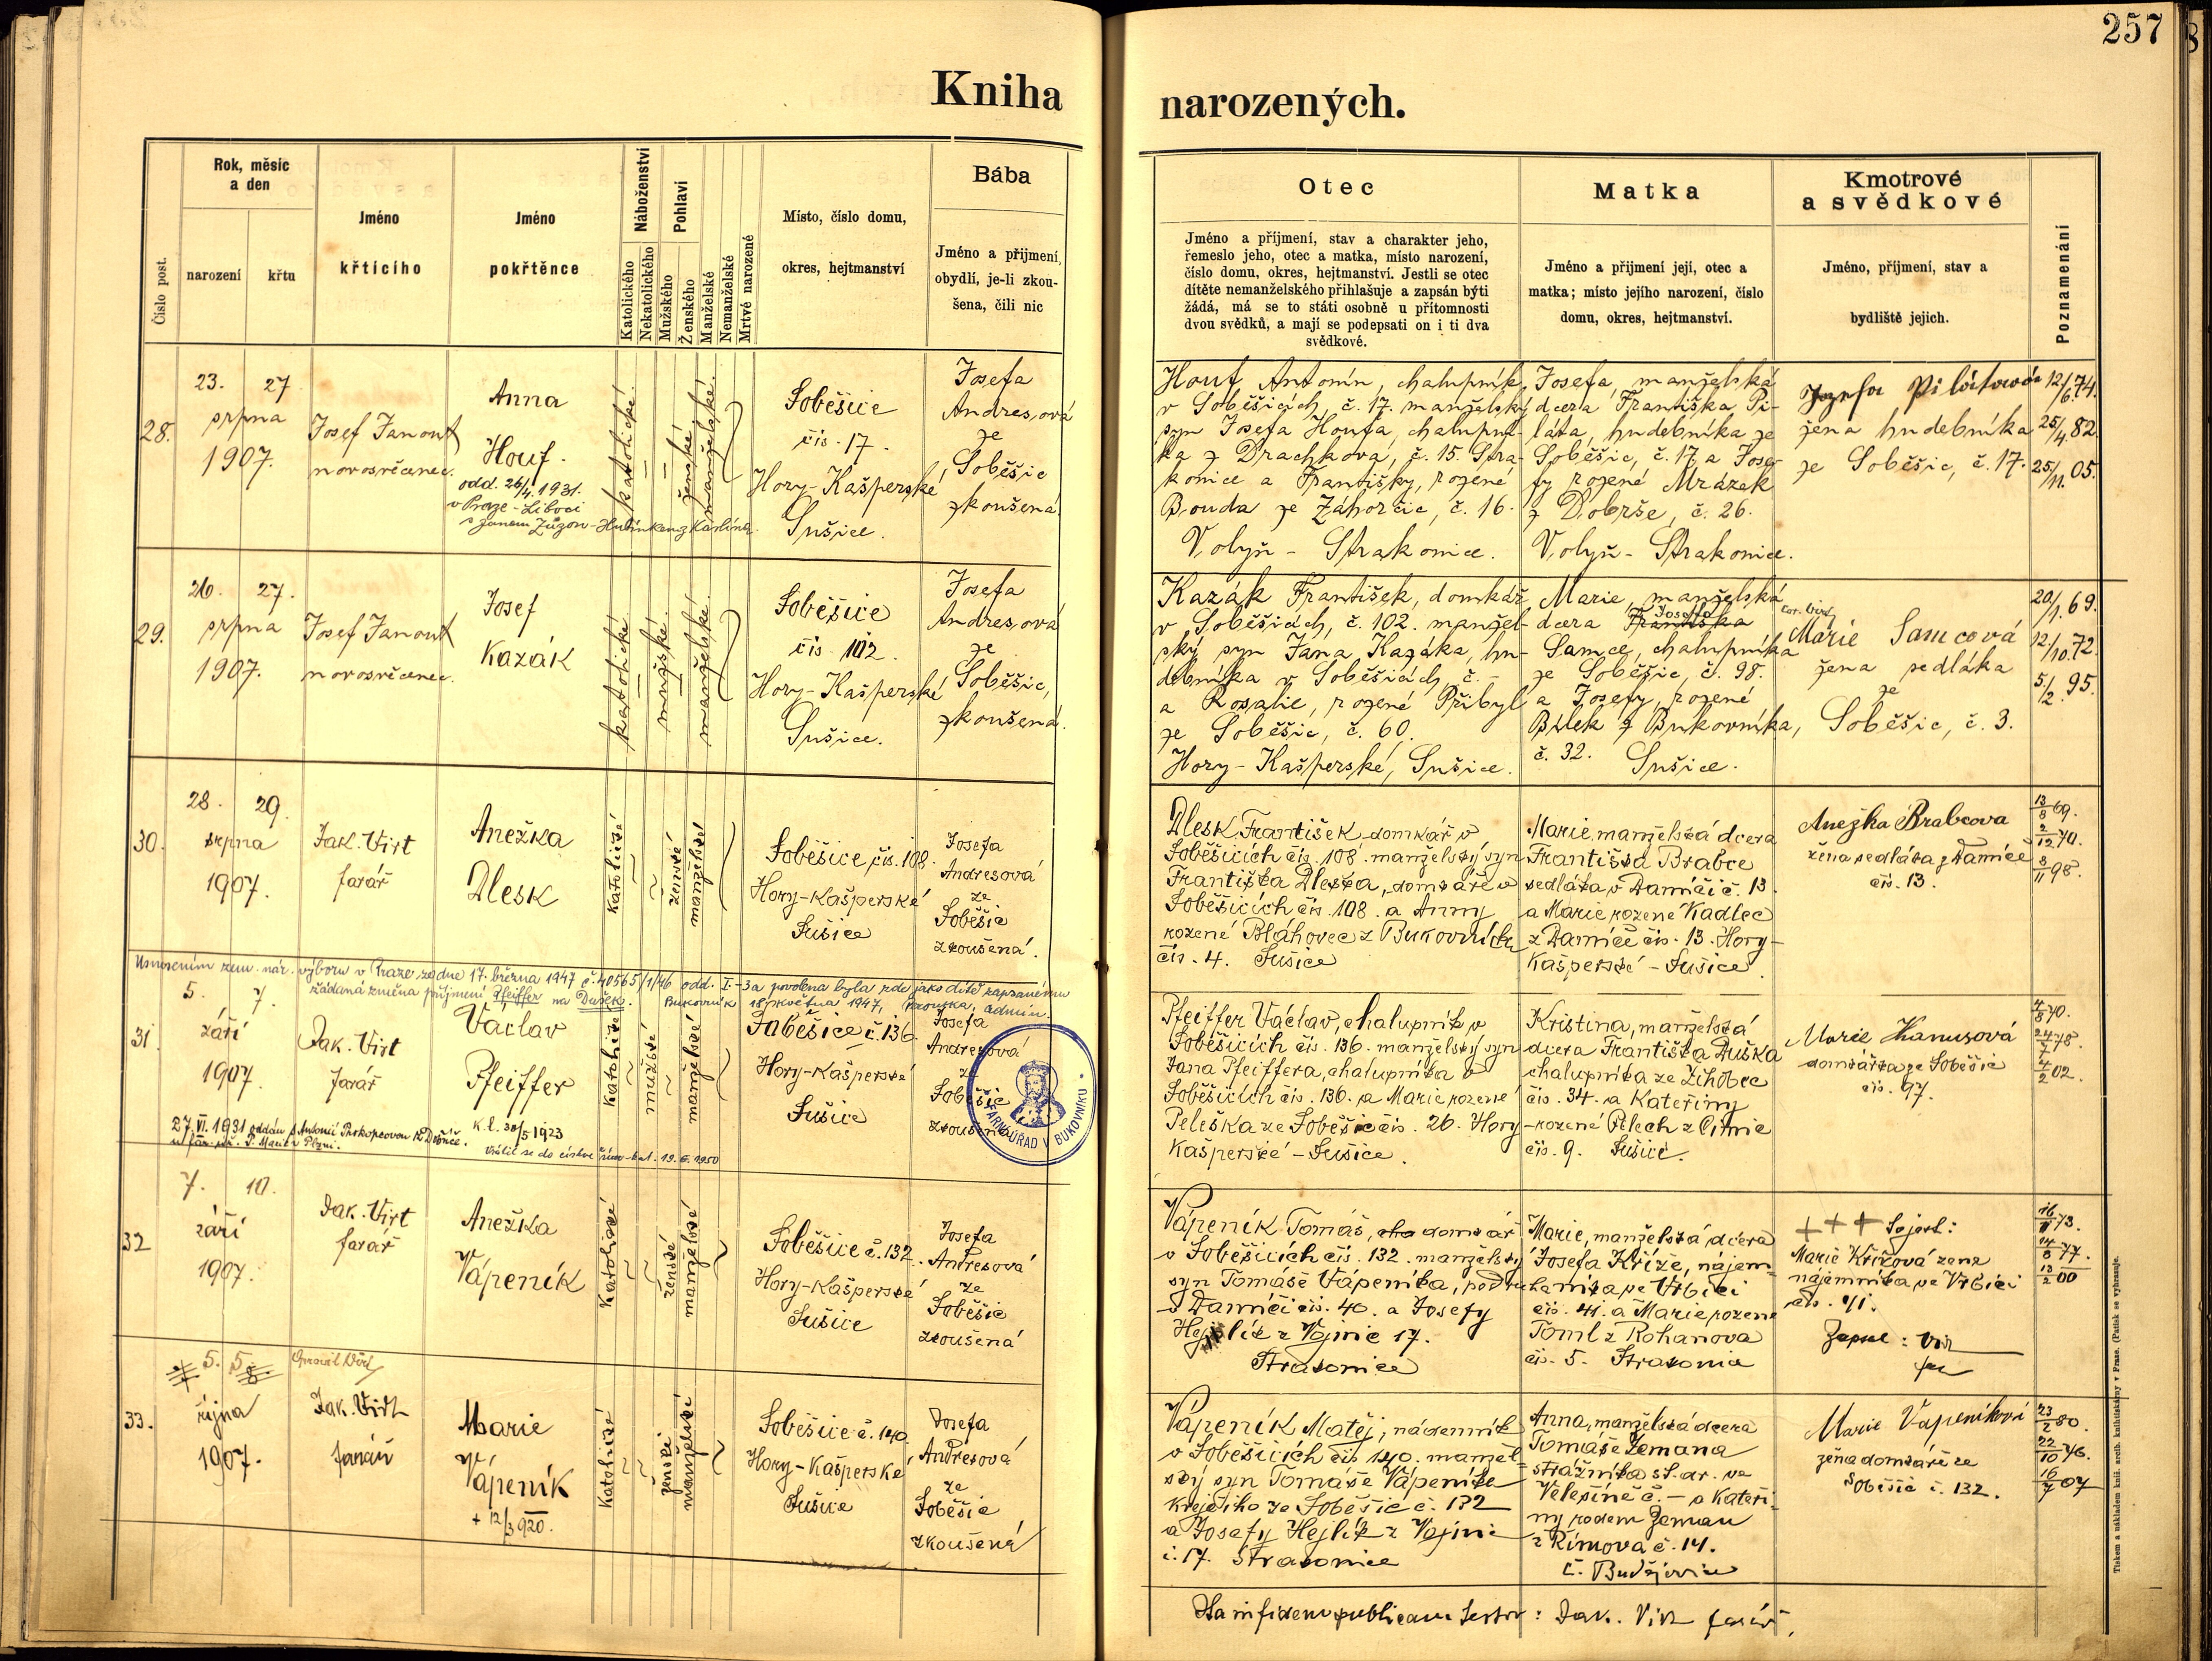 257
Kniha narozených.
Číslo post.
Rok, měsíc
a den
narození
křtu
Jméno
křtícího
Jméno
pokřtěnce
Náboženství
Katolického
Nekatolického
Pohlaví
Mužského
Ženského
Manželské
Nemanželské
Mrtvě narozené
Místo, číslo domu,
okres, hejtmanství
Bába
Jméno a příjmení,
obydlí, je-li zkou-
šena, čili nic
Otec
Jméno a příjmení, stav a charakter jeho,
řemeslo jeho, otec a matka, místo narození,
číslo domu, okres, hejtmanství. Jestli se otec
dítěte nemanželského přihlašuje a zapsán býti
žádá, má se to státi osobně u přítomnosti
dvou svědků, a mají se podepsati on i ti dva
svědkové.
Matka
Jméno a příjmení její, otec a
matka; místo jejího narození, číslo
domu, okres, hejtmanství.
Kmotrové
a svědkové
Jméno, příjmení, stav a
bydliště jejich.
Poznamenání
28.
23. 27
srpna
1907.
Josef Janout
novosvěcenec.
Anna
Houf.
odd. 26/4. 1931.
v Praze - Liboci
katolické
ženské
manželské
Soběšice
čís. 17.
Hory-Kašperské
Sušice.
Josefa
Andresová
ze
Soběšic
zkoušená
Houf Antonín, chalupník
v Soběšicích č. 17. manželský
syn Josefa Houfa, chalupní-
ka z Drachkova, č. 15. Stra-
konice a Františky, rozené
Bouda ze Záhorčic, č. 16.
Volyň - Strakonice.
Josefa, manželská
dcera Františka Pi-
láta, hudebníka ze
Soběšic, č. 17 a Jose-
fy rozené Mrázek
z Dobrše, č. 26.
Volyň - Strakonice.
Josefa Pilátová
žena hudebníka
ze Soběšic, č. 17.
12/6. 74.
25/4. 82.
25/11. 05.
29.
26. 27.
srpna
1907.
Josef Janout
novosvěcenec.
Josef
Kazák
katolické
mužské
manželské
Soběšice
čís. 102.
Hory-Kašperské
Sušice.
Josefa
Andresová
ze
Soběšic,
zkoušená.
Kazák František, domkář
v Soběšicích, č. 102. manžel-
ský syn Jána Kazáka, hu-
debníka v Soběšicích, č. -
a Rosalie, rozené Přibyl
ze Soběšic, č. 60.
Hory-Kašperské, Sušice.
Marie, manželská
dcera Františka Josefa
Samce, chalupníka
ze Soběšic, č. 98.
a Josefy, rozené
Bílek z Bukovníka,
č. 32. Sušice.
Marie Samcová
žena sedláka
ze
Soběšic, č. 3.
20/1. 69.
12/10. 72.
5/2. 95.
30.
28. 29.
srpna
1907.
Jak. Virt
farář
Anežka
Dlesk
katolické
ženské
manželské
Soběšice čís. 108.
Hory-Kašperské
Sušice
Josefa
Andresová
ze
Soběšic
zkoušená.
Dlesk František domkář v
Soběšicích čís. 108. manželský syn
Františka Dleska, domkáře v
Soběšicích čís. 108. a Anny
rozené Bláhovec z Bukovníka
čís. 4. Sušice
Marie, manželská dcera
Františka Brabce
sedláka v Damíči č. 13
a Marie rozené Kadlec
z Damíče čís. 13. Hory-
Kašperské - Sušice.
Anežka Brabcova
žena sedláka z Damíče
čís. 13.
13/8 69.
2/12 70.
8/11 98.
Usnesením zem. nár. výboru v Praze ze dne 17. března 1947 č. 40565/1/46 odd. I.-3a povolena byla zde jako dítě zapsanému
žádaná změna příjmení Pfeiffer na Dušek. Bukovník 18. května 1947,
31.
5. 7.
září
1907.
Jak. Virt
farář
Václav
Pfeiffer
27. VI. 1931 oddán s Antonií Prokopcovou
k.l. 30/5 1923
Vrátil se do církve řím-kat. 19. 6. 1950
katolické
mužské
manželské
Soběšice č. 136.
Hory-Kašperské
Sušice
Josefa
Andresová
ze
Soběšic
zkoušená
FARNÍ ÚŘAD V BUKOVNÍKU
Pfeiffer Václav, chalupník v
Soběšicích čís. 136. manželský syn
Jana Pfeiffera, chalupníka v
Soběšicích čís. 136. a Marie rozené
Peleška ze Soběšic čís. 26. Hory
Kašperské - Sušice.
Kristina, manželská
dcera Františka Duška
chalupníka ze Žihobec
čís. 34. a Kateřiny
-rozené Pelech z Čimic
čís. 9. Sušice.
Marie Hanusová
domkářka ze Soběšic
čís. 97.
4/8 70.
4/2 02.
32
7. 10.
září
1907.
Jak. Virt
farář
Anežka
Vápeník
katolické
ženské
manželské
Soběšice č. 132.
Hory-Kašperské
Sušice
Josefa
Andresová
ze
Soběšic
zkoušená
Vápeník Tomáš, cha domkář
v Soběšicích čís. 132. manželský
syn Tomáše Vápeníka, podruha
v Damíči čís. 40. a Josefy
Hejlík z Vojnic 17.
Strakonice
Marie, manželská dcera
Josefa Kříže, nájem-
níka ve Vrbici
čís. 41. a Marie rozené
Toml z Rohanova
čís. 5. Strakonice
+ + +
Marie Křížová žena
nájemníka ve Vrbici
čís. 41.
Zapsal: Virt
far
16/11 73.
14/8 77.
13/2 00
33.
5. 5.
Opravil Virt
října
1907.
Jak. Virt
farář
Marie
Vápeník
+ 12/3 920.
katolické
ženské
manželské
Soběšice č. 140.
Hory-Kašperské
Sušice
Josefa
Andresová
ze
Soběšic
zkoušená
Vápeník Matěj, nádenník
v Soběšicích čís 140. manžel-
ský syn Tomáše Vápeníka
krejčího ze Soběšic č. 132
a Josefy Hejlík z Vojnic
č. 17. Strakonice
Anna, manželská dcera
Tomáše Zemana
strážníka st. dr. ve
Velešíně č. - a Kateři-
ny rodem Zeman
z Římova č. 14.
Č. Budějovice
Marie Vapeníková
žena domkáře ze
Soběšic č. 132.
23/2 80.
22/10 76.
16/7 07
Ita in fidem publicam testor: Jak. Virt farář.
Tiskem a nákladem kníž. arcib. knihtiskárny v Praze. (Patisk se vyhrazuje.